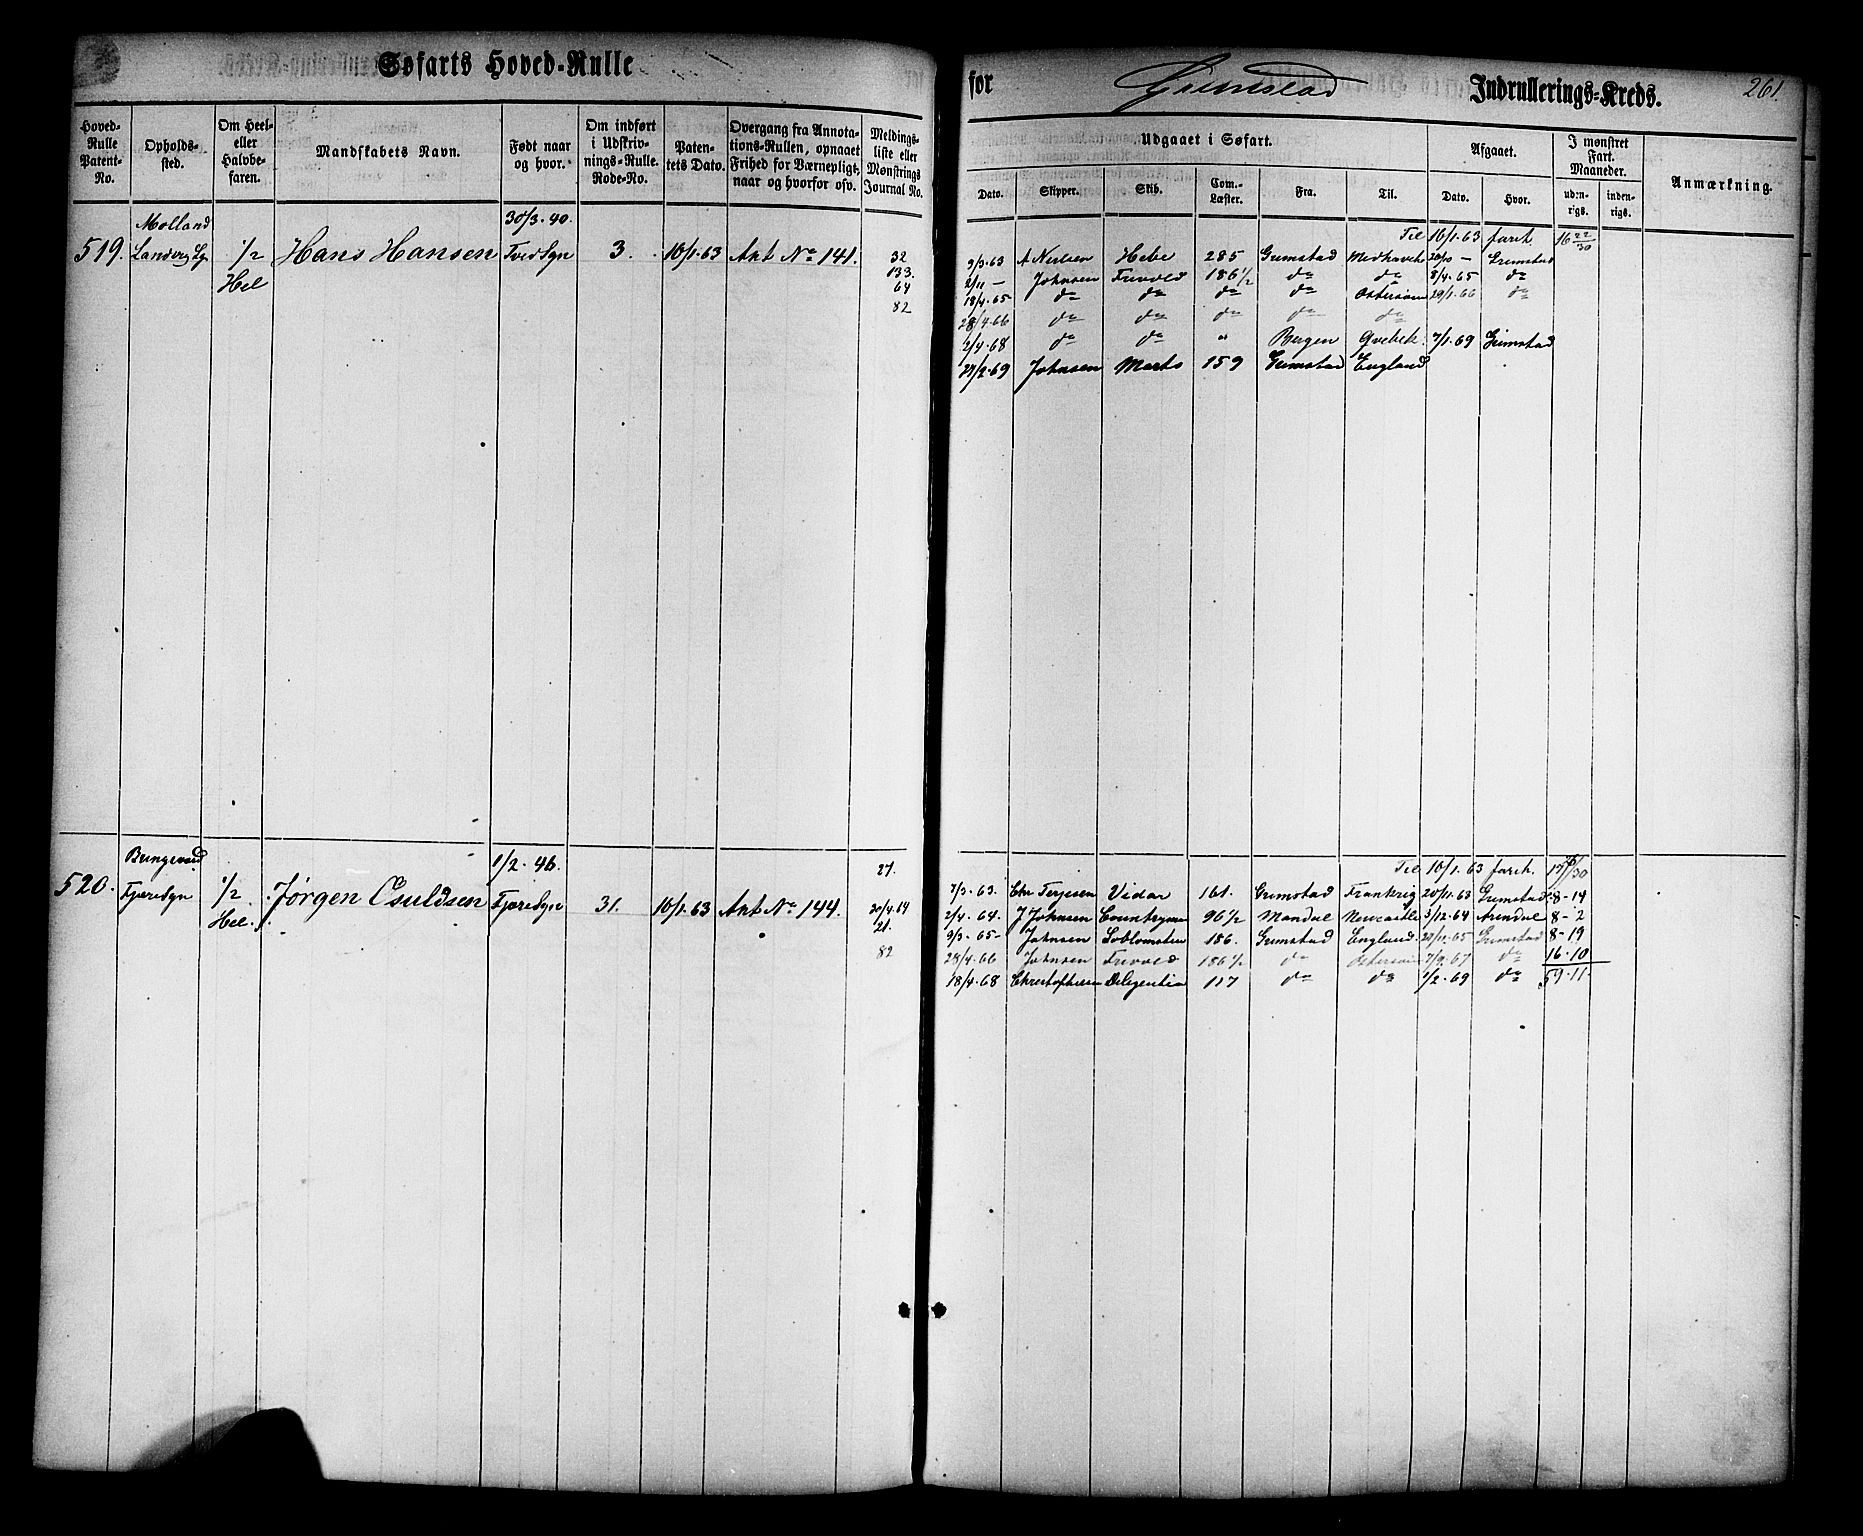 Søfarts Hoved-Rulle
for Grimstad Indrullerings-Kreds.
261.
Hoved-Rulle Patent-No.
Opholds-sted.
Om Heel- eller Halvbefaren.
Mandskabets Navn.
Født naar og hvor.
Om indført i Udskrivnings-Rulle. Rode-No.
Patentets Dato.
Overgang fra Annotations-Rullen, opnaaet Frihed for Værnepligt, naar og hvorfor osv.
Meldingsliste eller Mønstrings Journal No.
Udgaaet i Søfart.
Afgaaet.
I mønstret Fart. Maaneder.
Anmærkning.
Dato. Skipper. Skib. Com.-Læster. Fra. Til. Dato. Hvor. udenrigs. indenrigs.
Molland 30/3. 40. Til 16/1. 63 faret. 16 22/30
519. 1/2 Hans Hansen 3. 10/1. 63 Ant No 141. 32
Hel 133.
64
82
3/3. 63 A Nielsen Hebe 285 Grimstad 20/3 - Grimstad
2/11 - Johnsen Frivold 186 1/2 do do 8/4. 65 do
18/4. 65 do do do do Østersøen 29/1. 66 do
28/4. 66 do do do do do
2/4. 68 do do " Bergen Qvebek 7/1. 69 Grimstad
27/2. 69 Johnsen Marts 159 Grimstad England
1/2. 46. 27. Til 10/1. 63 faret.
520. Fjæresgn 1/2 Jørgen Osuldsen Fjæresgn 31. 10/1. 63 Ant No 144. 20/4. 64
Hel. 21.
82
7/3. 63. Chr Terjesen Vidar 161. Grimstad Frankrig 20/11. 63 Grimstad 8-14
2/4. 64. J Johnsen Countryman 96 1/2 Mandal Newcastle 3/12. 64 Arendal 8-2
9/3. 65- Johnsen Solblomsten 186. Grimstad England. Grimstad 8-19
28/4. 66 Johnsen Frivold 186 1/2 do Østersøen 7/9. 67 do 16-10
18/4. 68 Christophersen Diligentia 117 do do 1/2. 69 do 59-11